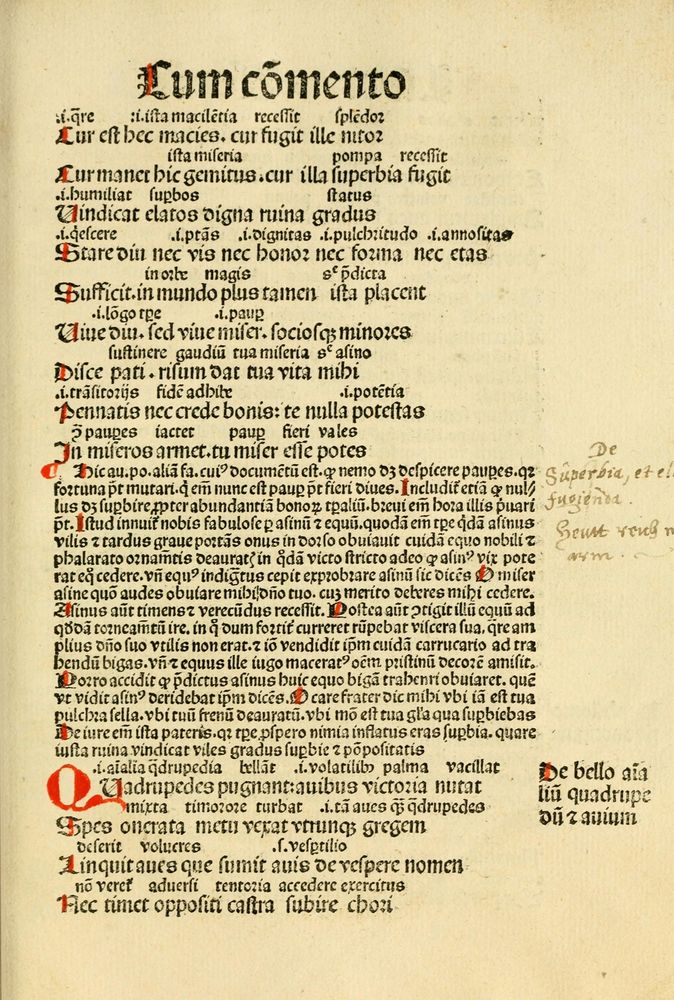 Cum cōmento
.i. q̄re .i. ista macilētia recessit splēdor
Cur est hec macies. cur fugit ille nitor
ista miseria pompa recessit
Cur manet hic gemitus. cur illa superbia fugit
.i. humiliat sup̱bos status
Uindicat elatos digna ruina gradus
.i. q̄escere .i. p̄tās .i. dignitas .i. pulchritudo .i. annositas
Stare diu nec vis nec honor nec forma nec etas
in orbe magis sᶜ p̄dicta
Sufficit. in mundo plus tamen ista placent
.i. lōgo tp̄e .i. paup̱
Uiue diu. sed viue miser. sociosqꝫ minores
sustinere gaudiū tua miseria sᶜ asino
Disce pati. risum dat tua vita mihi
.i. trāsitorijs fidē adhibe .i. potētia
Pennatis nec crede bonis: te nulla potestas
paup̱es iactet paup̱ fieri vales
In miseros armet. tu miser esse potes
Hic au. po. aliā fa. cuiꝰ documētū est. ꝙ nemo dꝫ despicere paup̱es. qꝛ
fortuna p̄t mutari. q̄ em̄ nunc est paup̱ p̄t fieri diues. Includit etiā ꝙ nul/
lus dꝫ sup̱bire ꝓpter abundantiā bonoꝝ tp̱aliū. breui em̄ hora illis p̱uari
p̄t. Istud innuit nobis fabulose p̱ asinū ⁊ equū. quodā em̄ tp̄e q̄dā asinus
vilis ⁊ tardus graue portās onus in dorso obuiauit cuidā equo nobili ⁊
phalarato ornamētis deauratꝭ in q̄dā victo stricto adeo ꝙ asinꝰ vix pote
rat eq̄ cedere. vn̄ equꝰ indigtus cepit exprobrare asinū sic dicēs O miser
asine quō audes obuiare mihi dn̄o tuo. cuꝫ merito deberes mihi cedere.
Asinus aūt timens ⁊ verecūdus recessit. Postea aūt ꝯtigit illū equū ad
torneamētū ire. in q̄ dum fortit curreret rūpebat viscera sua. q̄re am
plius dn̄o suo vtilis non erat. ⁊ iō vendidit ip̄m cuidā carrucario ad tra
hendū bigas. vn̄ ⁊ equus ille iugo maceratꝰ oēm pristinū decorē amisit.
Porro accidit ꝙ p̄dictus asinus huic equo bigā trahenti obuiaret. quē
vt vidit asinꝰ deridebat ip̄m dicēs. O care frater dic mihi vbi iā est tua
pulchra sella. vbi tuū frenū deauratū. vbi mō est tua gl̄a qua sup̱biebas
De iure em̄ ista pateris. qꝛ tp̄e ꝓspero nimia inflatus eras sup̱bia. quare
iusta ruina vindicat viles gradus sup̱bie ⁊ p̄positatis
.i. aīalia q̄drupedia bellāt .i. volatilibꝰ palma vacillat
Quadrupedes pugnant: auibus victoria nutat
mixta timorore turbat .i. tā aues qꝫ q̄drupedes
Spes onerata metu vexat vtrunqꝫ gregem
deserit volucres .s. vesp̱tilio
Linquit aues que sumit auis de vespere nomen
nō veret aduersi tentoria accedere exercitus
Nec timet oppositi castra subire chori
De
Sup̱erbia, et
fugienda.
Heutt reich
arm.
De bello aīa
liū quadrupe
dū ⁊ auium